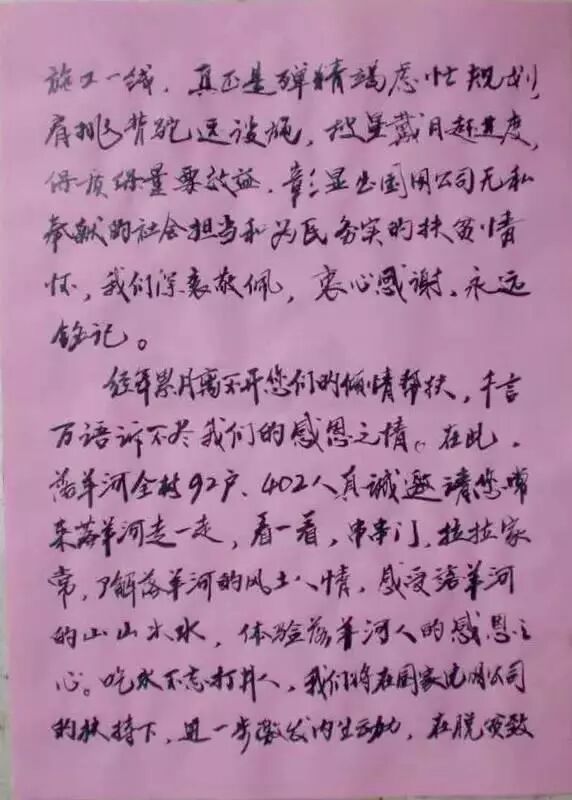 施工一线，真正是殚精竭虑忙规划，
肩挑背驼运设施，披星戴月赶进度，
保质保量要效益，彰显出国网公司无私
奉献的社会担当和为民务实的扶贫情
怀，我们深表敬佩，衷心感谢、永远
铭记。
经年累月离不开您们的倾情帮扶，千言
万语诉不尽我们的感恩之情。在此，
落羊河全村92户、402人真诚邀请您常
来落羊河走一走，看一看，串串门，拉拉家
常，了解落羊河的风土人情，感受落羊河
的山山水水，体验落羊河人的感恩之
心。吃水不忘打井人，我们将在国家电网公司
的扶持下，进一步激发内生动力，在脱贫致